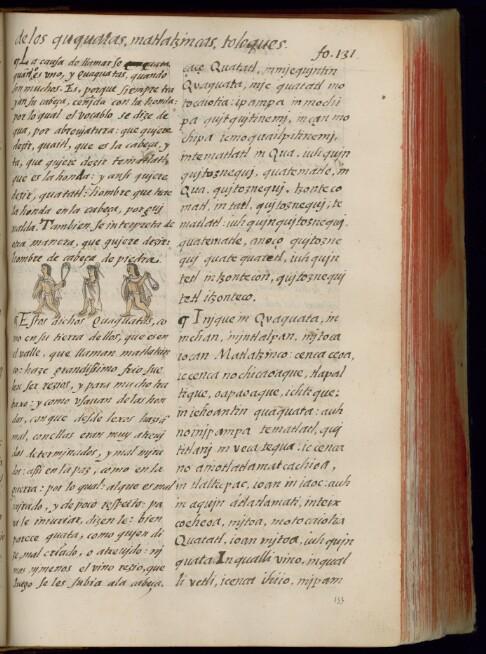 de los quaquatas, matlatzincas, toloques.
fo. 131
¶ La causa de llamarse quata,
quando es vno, y quaquatas, quando
son muchos. Es, porque siempre tra
yan su cabeça, ceñida con la honda:
por lo qual el vocablo se dize de
qua, por abreujatura: que qujere
dezir, quaitl, que es la cabeça, y
ta, que qujere dezir tematlatl,
que es la honda: y ansi qujere
dezir, quatatl: hombre que trae
la honda en la cabeça, por guir
nalda. Tambien se interpreta de
otra manera, que qujere dezir:
hombre de cabeça de piedra.
¶ Estos dichos Quaquatas, co
mo en su tierra dellos, que es en
el valle, que llaman matlatzin
co: haze grandissimo frio sue
len ser rezios, y para mucho tra
baxo: y como vsauan de las hon
das, con que desde lexos hazian
mal, con ellas eran muy atreuj
dos determinados, y mal mjra
dos: assi en la paz, como en la
guerra: por lo qual: al que es mal
mjrado, y de poco respecto: pa
ra le iniuriar, dizen le: bien
parece quata, como qujen di
ze, mal criado, o atreujdo: nj
mas nj menos el vino rezio, que
luego se les subia a la cabeça,
cace Quatatl, in mjequjntin
Quaquata, njc quatatl no
tocaiotia: ipampa in mochi
pa qujtqujtinemj, in can mo
chipa ic moquailpitinemj,
in tematlatl in Qua, iuhqujn
qujtoznequj, quatematle, in
Qua, qujtoznequj, itzonteco
matl, in tatl, qujtoznequj, te
matlatl: iuhqujnqujtoznequj
quatematle, anoço qujtozne
quj quate quatetl, iuhqujn
tetl intzontecon, qujtoznequj
tetl itzonteco.
¶ In jque in Quaquata, in
inchan, injntlalpan, mjtoca
iocan Matlatzinco: cenca cecoa,
ic cenca nochicaoaque, tlapal
tique, oapaoaque, ichtique:
in iehoantin quaquata: auh
no injpampa tematlatl, qui
titlanj in veca tequa: ic cenca
no amo tlatlamatcachioa,
in tlalticpac, ioan in iaoc: auh
in aqujn atlatlamati, inteix
cocheoa, mjtoa, motocaiotia
Quatatl, ioan mjtoa, iuhqujn
quata: In qualli vino, in qual
li vctli, icenca ihiio, njpam
133